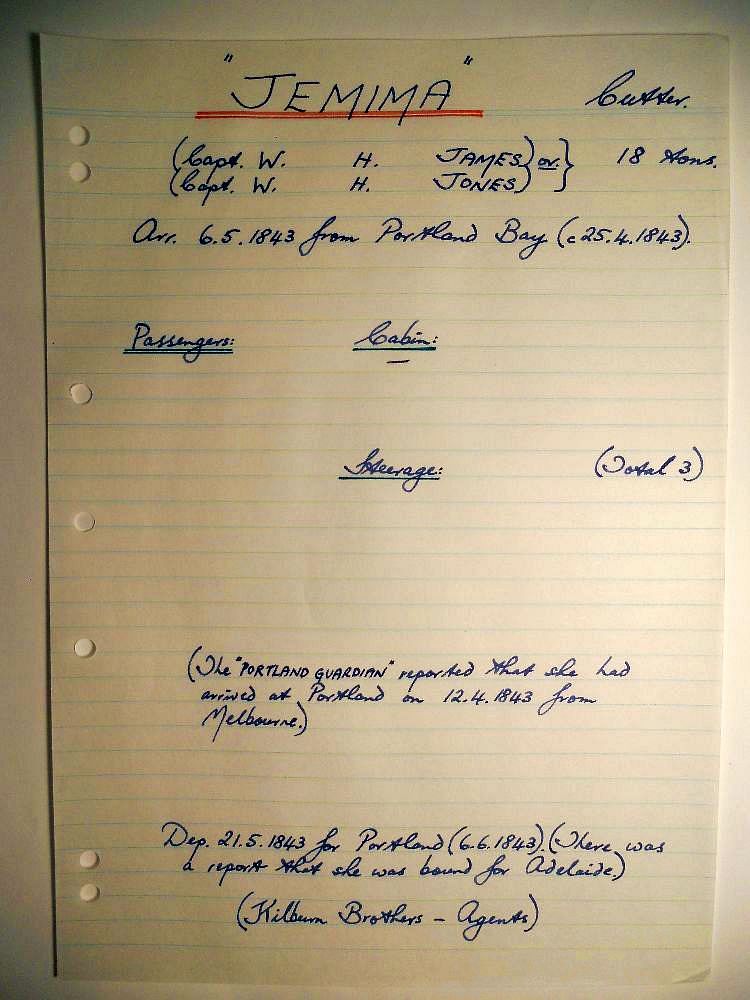 "JEMIMA" Cutter.
(Capt. W. H. JAMES) or } 18 tons.
(Capt. W. H. JONES)
Arr. 6.5.1843 from Portland Bay (c 25.4.1843).
Passengers: Cabin:
—
Steerage: (Total 3)
(The "PORTLAND GUARDIAN" reported that she had
arrived at Portland on 12.4.1843 from
Melbourne.)
Dep. 21.5.1843 for Portland (6.6.1843). (There was
a report that she was bound for Adelaide.)
(Kilburn Brothers - Agents)